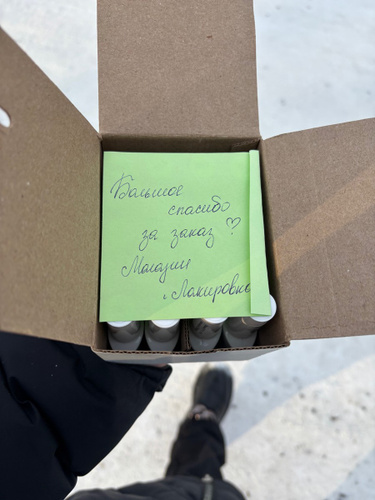 Большое
спасибо
за заказ ♡
Магазин
"Лакировка